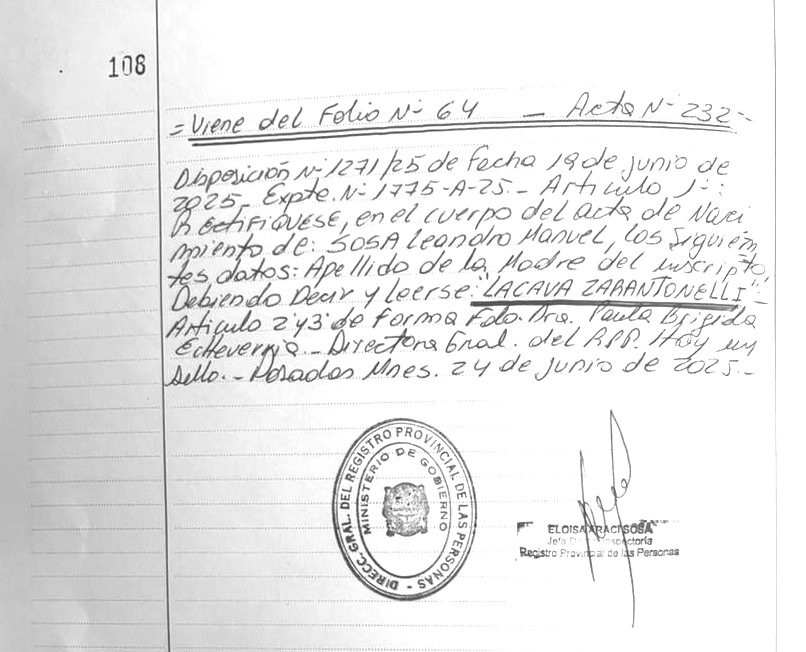 108
= Viene del Folio Nº 64 — Acta Nº 232-
Disposición Nº 1271/25 de Fecha 19 de junio de
2025- Expte. Nº 1775-A-25.- Artículo 1º:
RECTIFIQUESE, en el cuerpo del acta de Naci
miento de: SOSA Leandro Manuel, los siguien
tes datos: Apellido de la Madre del inscripto,
Debiendo Decir y leerse: "LACAVA ZARANTONELLI"-
Artículo 2º y 3º de forma Fdo. Dra. Paula Brigida
Echeverria - Directora Gral. del RPP. Hay un
sello.- Posadas Mnes. 24 de junio de 2025.-
DIRECC. GRAL. DEL REGISTRO PROVINCIAL DE LAS PERSONAS -
MINISTERIO DE GOBIERNO
ELOISA ARACI SOSA
Jefa Inspectoría
Registro Provincial de las Personas